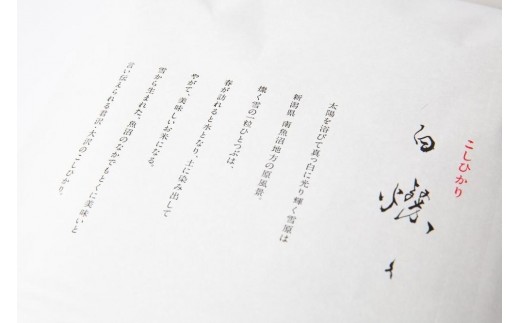 こしひかり
白燦々
太陽を浴びて真っ白に光り輝く雪原は
新潟県 南魚沼地方の原風景。
燦く雪の一粒ひとつぶは、
春が訪れると水となり、土に染み出して
やがて、美味しいお米になる。
雪から生まれた、魚沼のなかでもとくに美味いと
言い伝えられる君沢・大沢のこしひかり。